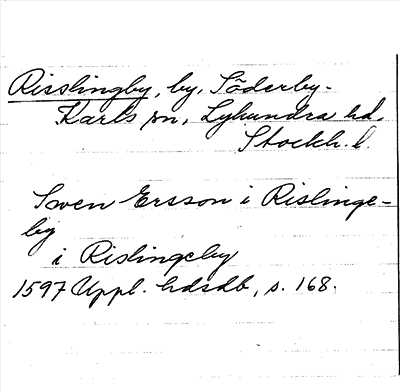 Risslingby, by, Söderby-
Karls sn, Lyhundra hd,
Stockh. l.
Sven Ersson i Rislinge-
by
i Rislingeby
1597 Uppl. hdsdb, s. 168.